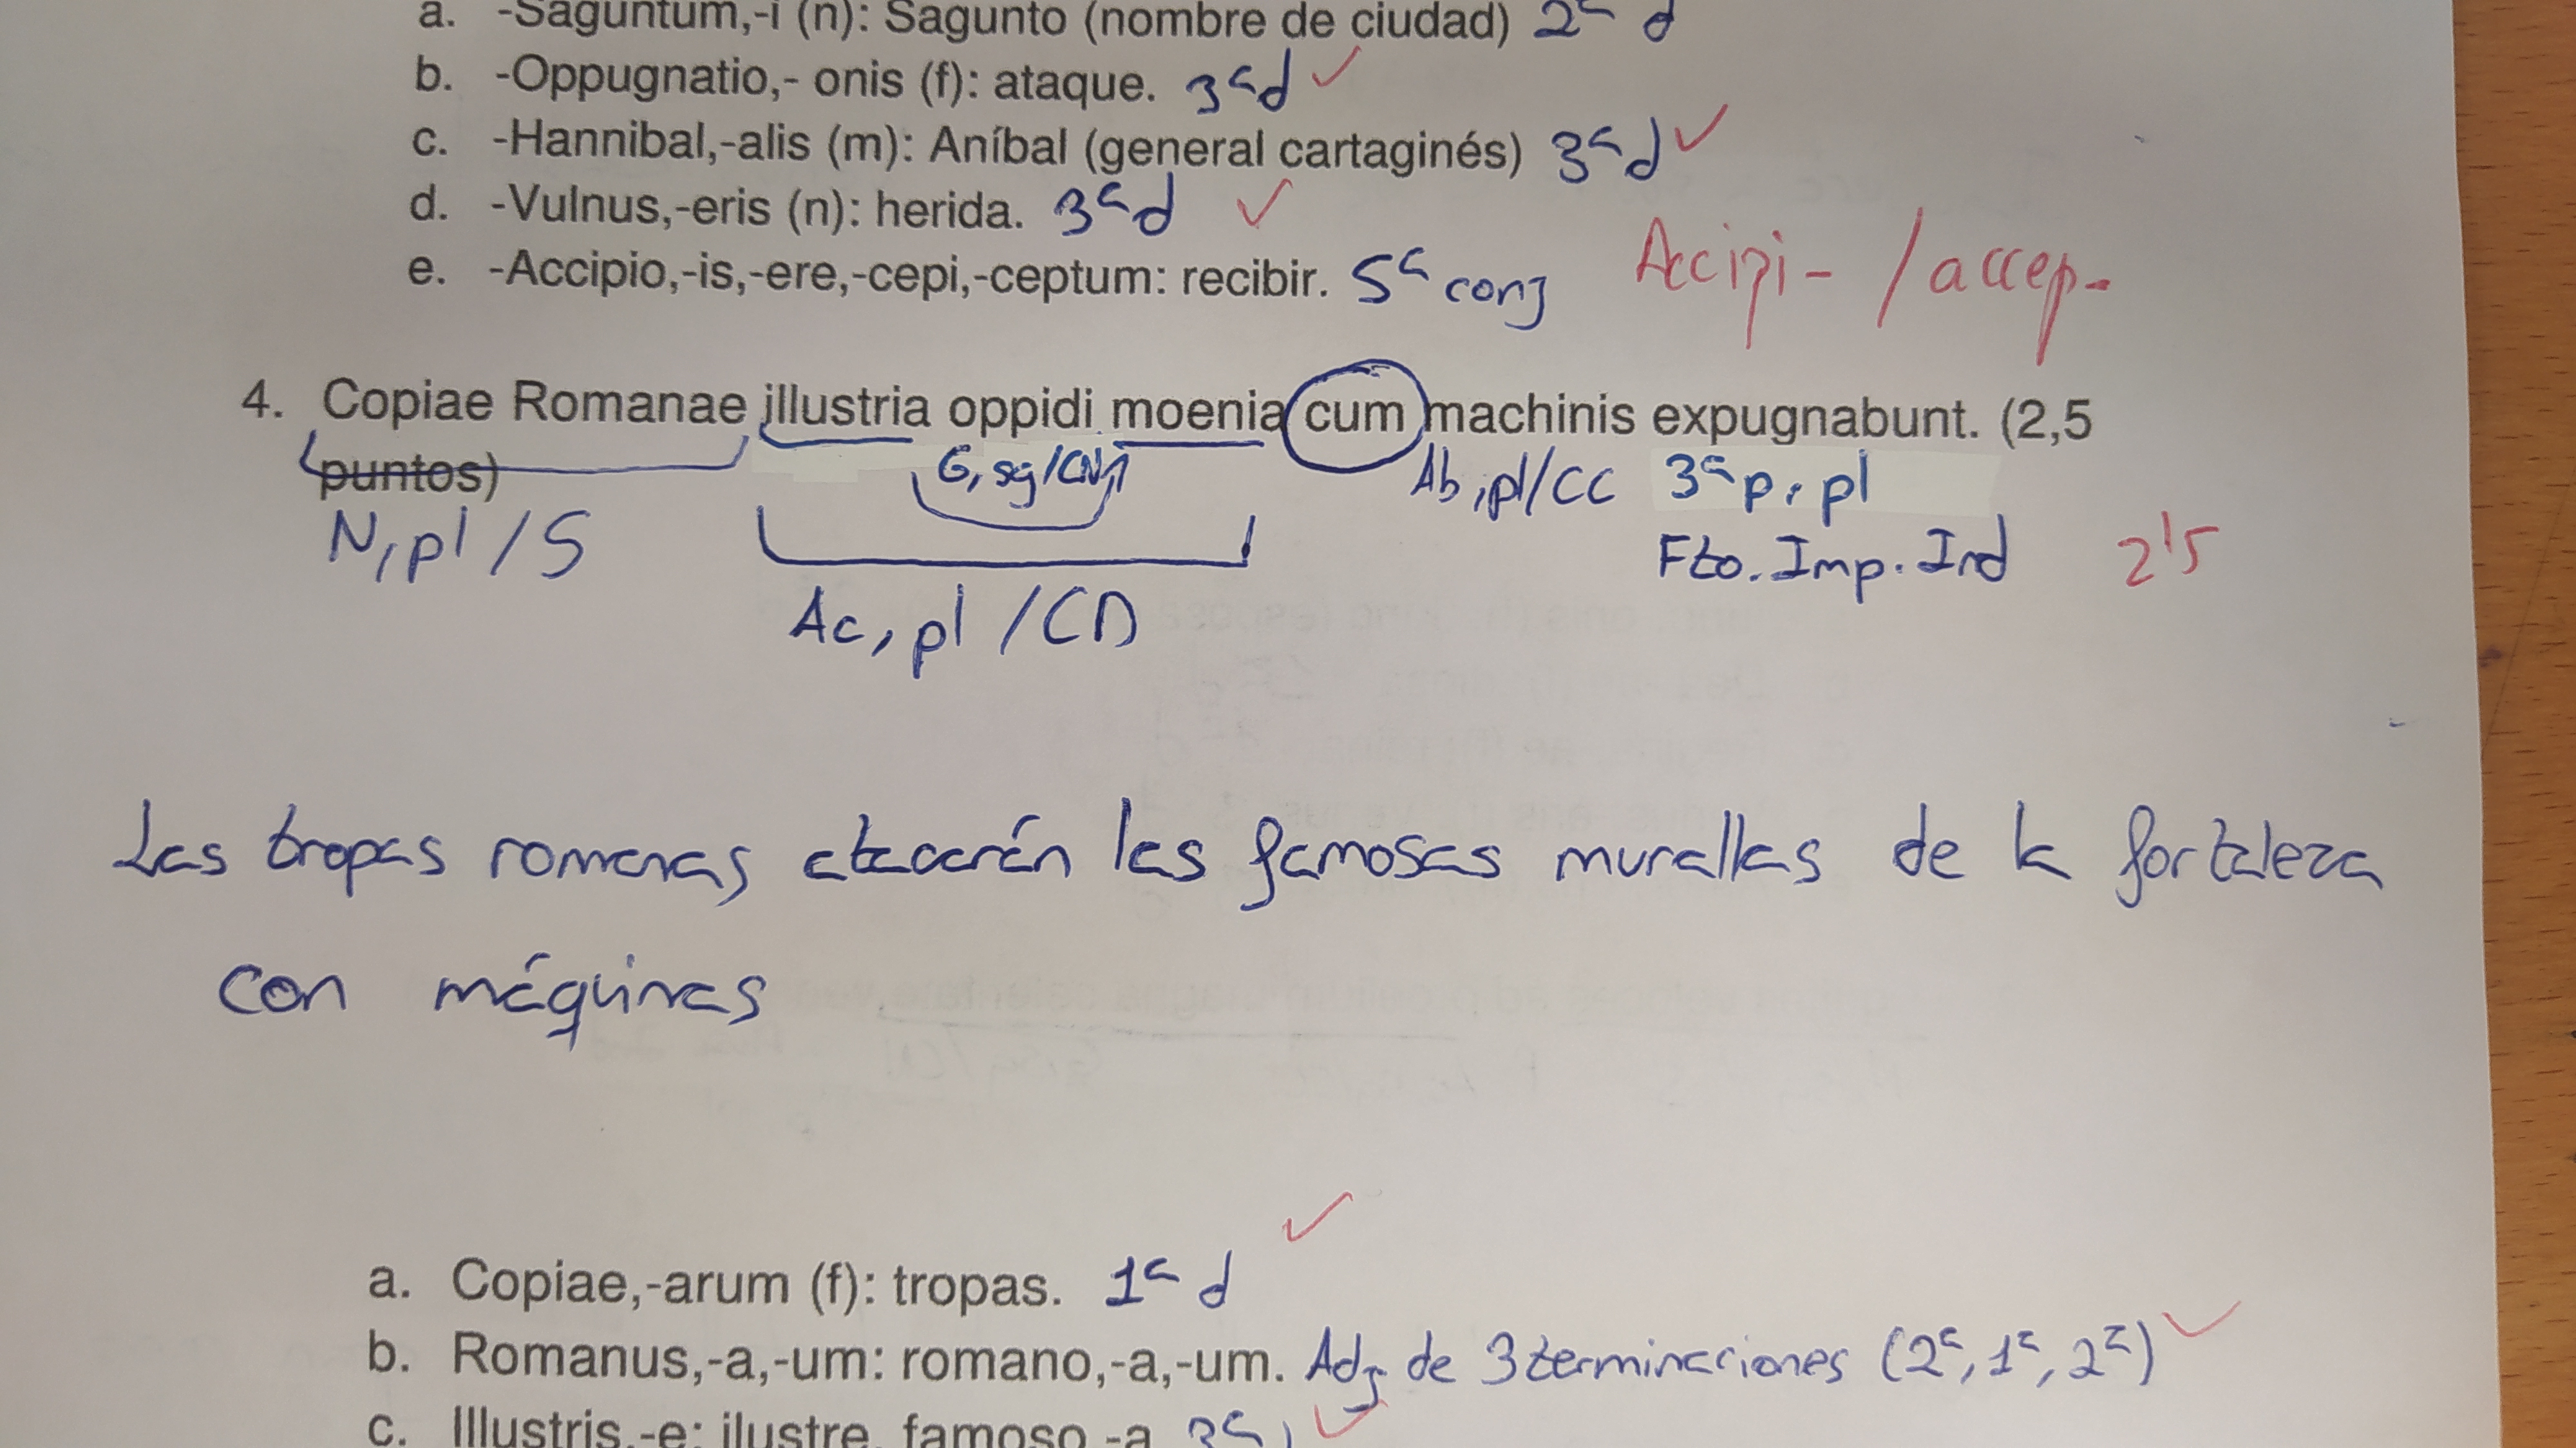 a. -Saguntum,-i (n): Sagunto (nombre de ciudad) 2ª d
b. -Oppugnatio,- onis (f): ataque. 3ª d ✓
c. -Hannibal,-alis (m): Aníbal (general cartaginés) 3ª d ✓
d. -Vulnus,-eris (n): herida. 3ª d ✓
e. -Accipio,-is,-ere,-cepi,-ceptum: recibir. 5ª conj Accipi- / accep-
4. Copiae Romanae illustria oppidi moenia cum machinis expugnabunt. (2,5
puntos)
N, pl / S
G, sg/CN
Ac, pl / CD
Ab, pl/CC
3ª p, pl
Fto. Imp. Ind
2'5
Las tropas romanas atacarán las famosas murallas de la fortaleza
con máquinas
a. Copiae,-arum (f): tropas. 1ª d ✓
b. Romanus,-a,-um: romano,-a,-um. Adj de 3 terminaciones (2ª, 1ª, 2ª) ✓
c. Illustris,-e: ilustre, famoso -a 3ª ✓